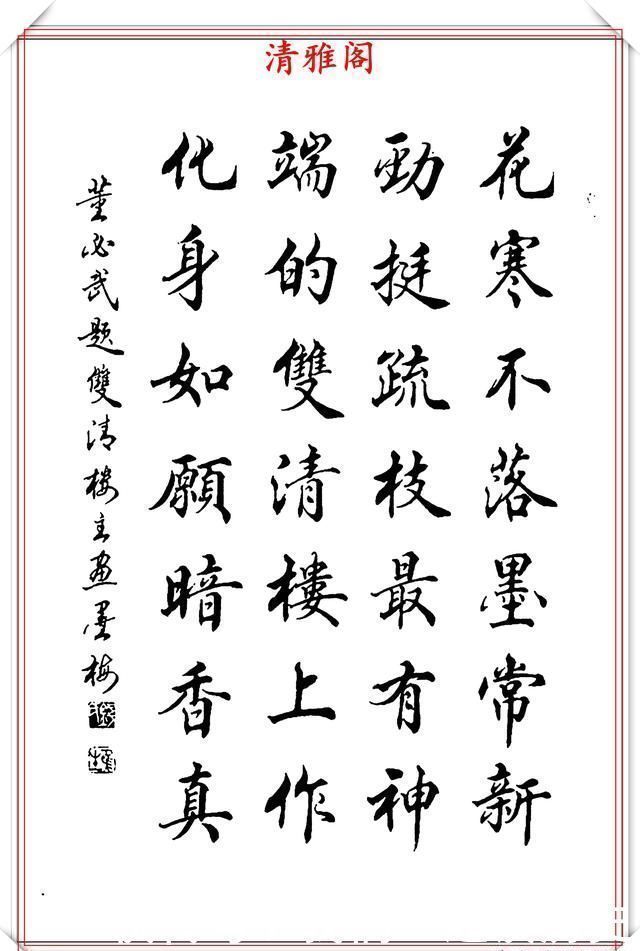 清雅阁
花寒不落墨常新
勁挺疏枝最有神
端的雙清樓上作
化身如願暗香真
董必武题雙清樓主画墨梅